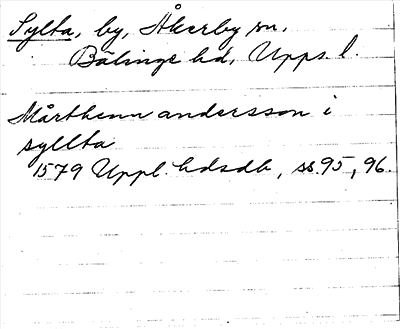 Sylta, by, Åkerby sn,
Bälinge hd, Upps. l.
Mårthenn andersson i
syllta
1579 Uppl. hdsdb, ss. 95, 96.